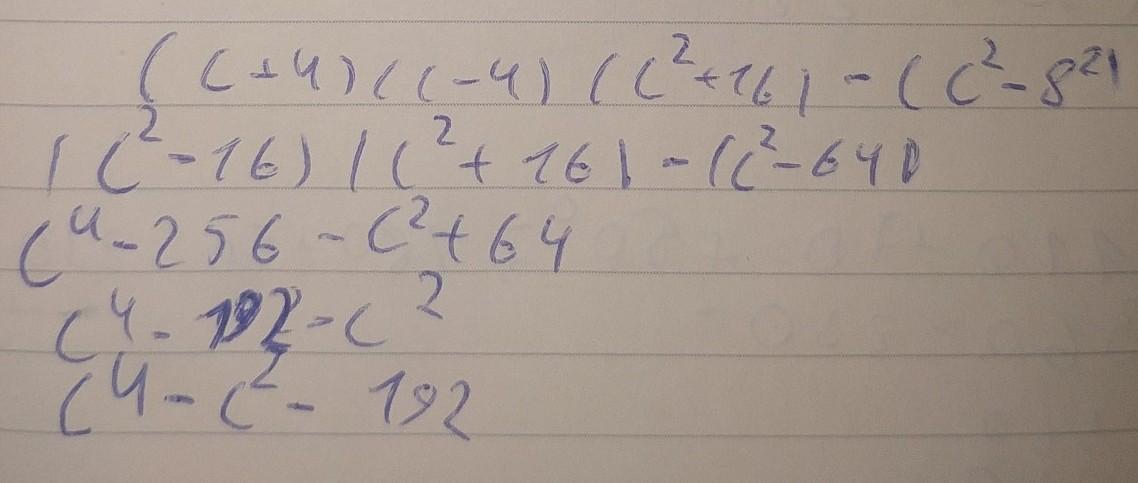 (c+4)(c-4)(c²+16)-(c²-8²)
(c²-16)(c²+16)-(c²-64)
c⁴-256-c²+64
c⁴-192-c²
c⁴-c²-192